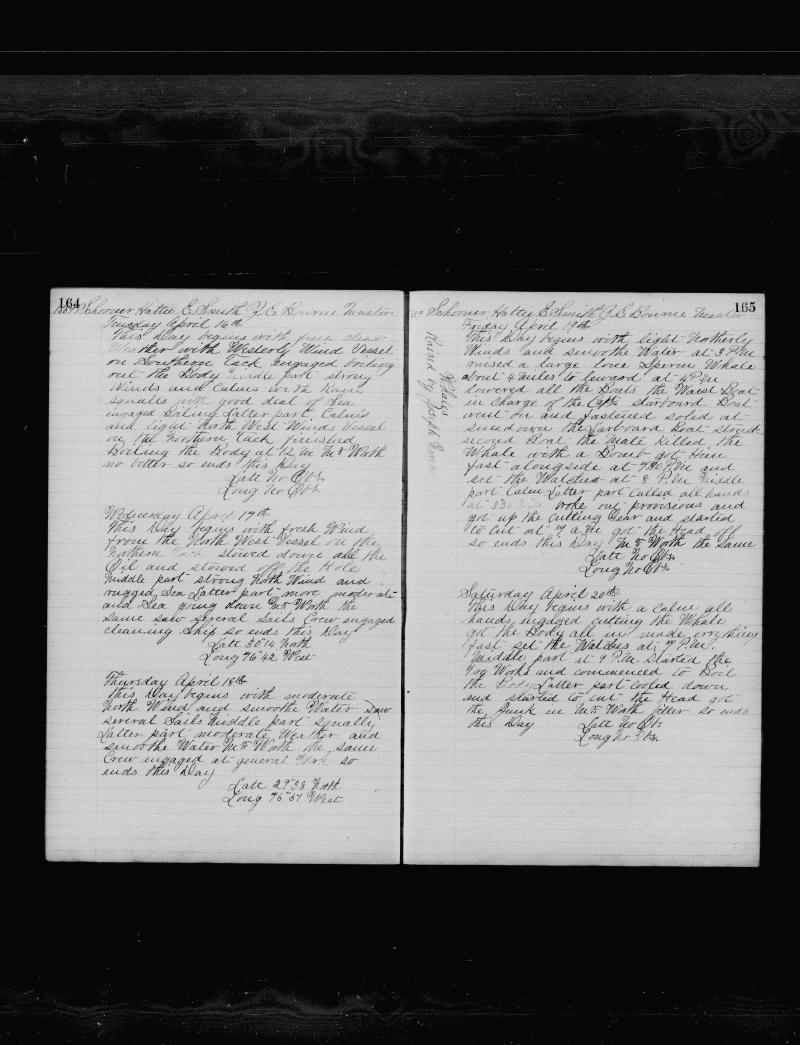 164
Schooner Hattie E Smith J. E. Bourne Master
Tuesday April 16th
This Day begins with fine clear
Weather with Westerly Wind Vessel
on Southern tack engaged boiling
out the Body Middle part strong
Winds and Calms with Rain
squalls with good deal of Sea
engaged Boiling Latter part Calms
and light North West Winds Vessel
on the Northern tack finished
Boiling the Body at 12 M Mr Worth
no better so ends this Day
Latt No Obs
Long No Obs
Wednesday April 17th
This Day begins with fresh Wind
from the North West Vessel on the
Northern tack stowed down all the
Oil and stowed off the Hole
Middle part strong North Wind and
rugged Sea Latter part more moderate
and Sea going down Mr Worth the
same saw several Sails Crew engaged
cleaning Ship so ends this Day
Latt 30°14 North
Long 76°42 West
Thursday April 18th
This Day begins with moderate
North Wind and smoothe Water saw
several Sails Middle part squally
Latter part moderate Weather and
smoothe Water Mr Worth the same
Crew engaged at general Work so
ends this Day
Latt 29°58 North
Long 76°57 West
165
Schooner Hattie E Smith J. E. Bourne Master
Friday April 19th
This Day begins with light Northerly
Winds and smoothe Water at 3 P.M
raised a large lone Sperm Whale
about 4 miles to leward at 4 P.M
lowered all the Boats the Waist Boat
in charge of the Capt. starboard Boat
went on and fastened solid at
sundown the Larboard Boat struck
second Boat the Mate killed the
Whale with a Bomb got Him
fast alongside at 730 P.M and
set the Watches at 8 P.M Middle
part Calm Latter part called all hands
at 530 broke out provisions and
got up the Cutting Gear and started
to Cut at 7 a.m got the Head off
so ends this Day Mr Worth the same
Latt No Obs.
Long No Obs.
Whales
Raised by Joseph
Saturday April 20th
This Day begins with a Calm all
hands engaged cutting the Whale
got the Body all in made errything
fast set the Watches at 7 P.M.
Middle part at 9 P.M. started the
Try Works and commenced to Boil
the Body Latter part cooled down
and started to cut the Head got
the Junk in Mr Worth better so ends
this Day
Latt No Obs
Long No Obs.